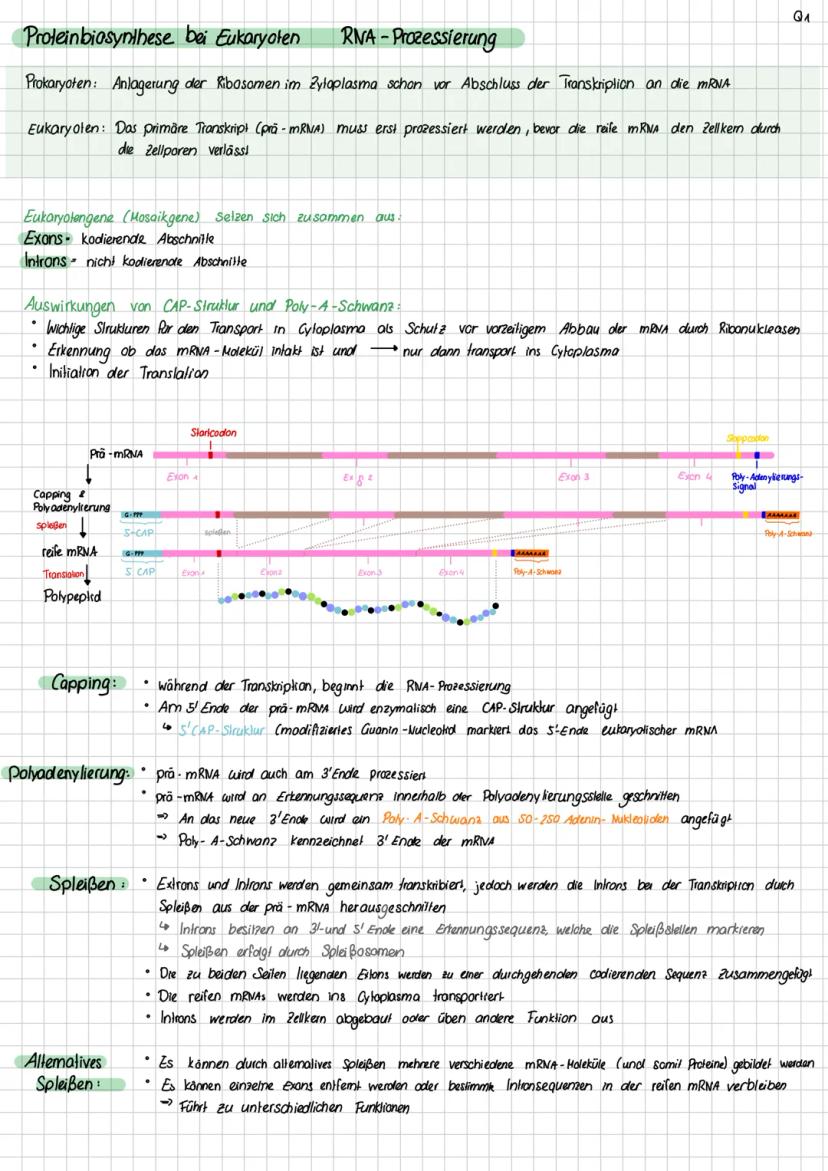 Q1
Proteinbiosynthese bei Eukaryoten RNA-Prozessierung
Prokaryoten: Anlagerung der Ribosomen im Zytoplasma schon vor Abschluss der Transkription an die mRNA
Eukaryoten: Das primäre Transkript (prä-mRNA) muss erst prozessiert werden, bevor die reife mRNA den Zellkern durch
die Zellporen verlässt
Eukaryotengene (Mosaikgene) setzen sich zusammen aus:
Exons- kodierende Abschnitte
Introns- nicht kodierende Abschnitte
Auswirkungen von CAP-Struktur und Poly-A-Schwanz:
• Wichtige Strukturen für den Transport in Cytoplasma als Schutz vor vorzeitigem Abbau der mRNA durch Ribonukleasen
• Erkennung ob das mRNA-Molekül intakt ist und → nur dann transport ins Cytoplasma
• Initiation der Translation
Startcodon
Stoppcodon
Prä-mRNA
Exon 1 Exon 2 Exon 3 Exon 4
Poly-Adenylierungs-
Signal
Capping &
Polyadenylierung
G-PPP
AAAAAAA
spleißen
5-CAP
spleißen
Poly-A-Schwanz
reife mRNA
G-PPP
AAAAAAA
Translation
5 CAP
Exon 1 Exon2 Exon 3 Exon 4
Poly-A-Schwanz
Polypeptid
Capping: • Während der Transkription, beginnt die RNA-Prozessierung
• Am 5' Ende der prä-mRNA wird enzymatisch eine CAP-Struktur angefügt
↳ 5'CAP-Struktur (modifiziertes Guanin-Nucleotid markiert das 5'-Ende eukaryotischer mRNA
Polyadenylierung: • prä-mRNA wird auch am 3'Ende prozessiert
• prä-mRNA wird an Erkennungssequenz innerhalb der Polyadenylierungsstelle geschnitten
⇒ An das neue 3'Ende wird ein Poly-A-Schwanz aus 50-250 Adenin-Nukleotiden angefügt
⇒ Poly-A-Schwanz kennzeichnet 3' Ende der mRNA
Spleißen: • Extrons und Introns werden gemeinsam transkribiert, jedoch werden die Introns bei der Transkription durch
Spleißen aus der prä-mRNA herausgeschnitten
↳ Introns besitzen an 3'-und 5' Ende eine Erkennungssequenz, welche die Spleißstellen markieren
↳ Spleißen erfolgt durch Spleißosomen
• Die zu beiden Seiten liegenden Extons werden zu einer durchgehenden codierenden Sequenz zusammengefügt
• Die reifen mRNAs werden ins Cytoplasma transportiert
• Introns werden im Zellkern abgebaut oder üben andere Funktion aus
Alternatives • Es können durch alternatives Spleißen mehrere verschiedene mRNA-Moleküle (und somit Proteine) gebildet werden
Spleißen: • Es können einzelne Exons entfernt werden oder bestimmte Intronsequenzen in der reifen mRNA verbleiben
⇒ Führt zu unterschiedlichen Funktionen